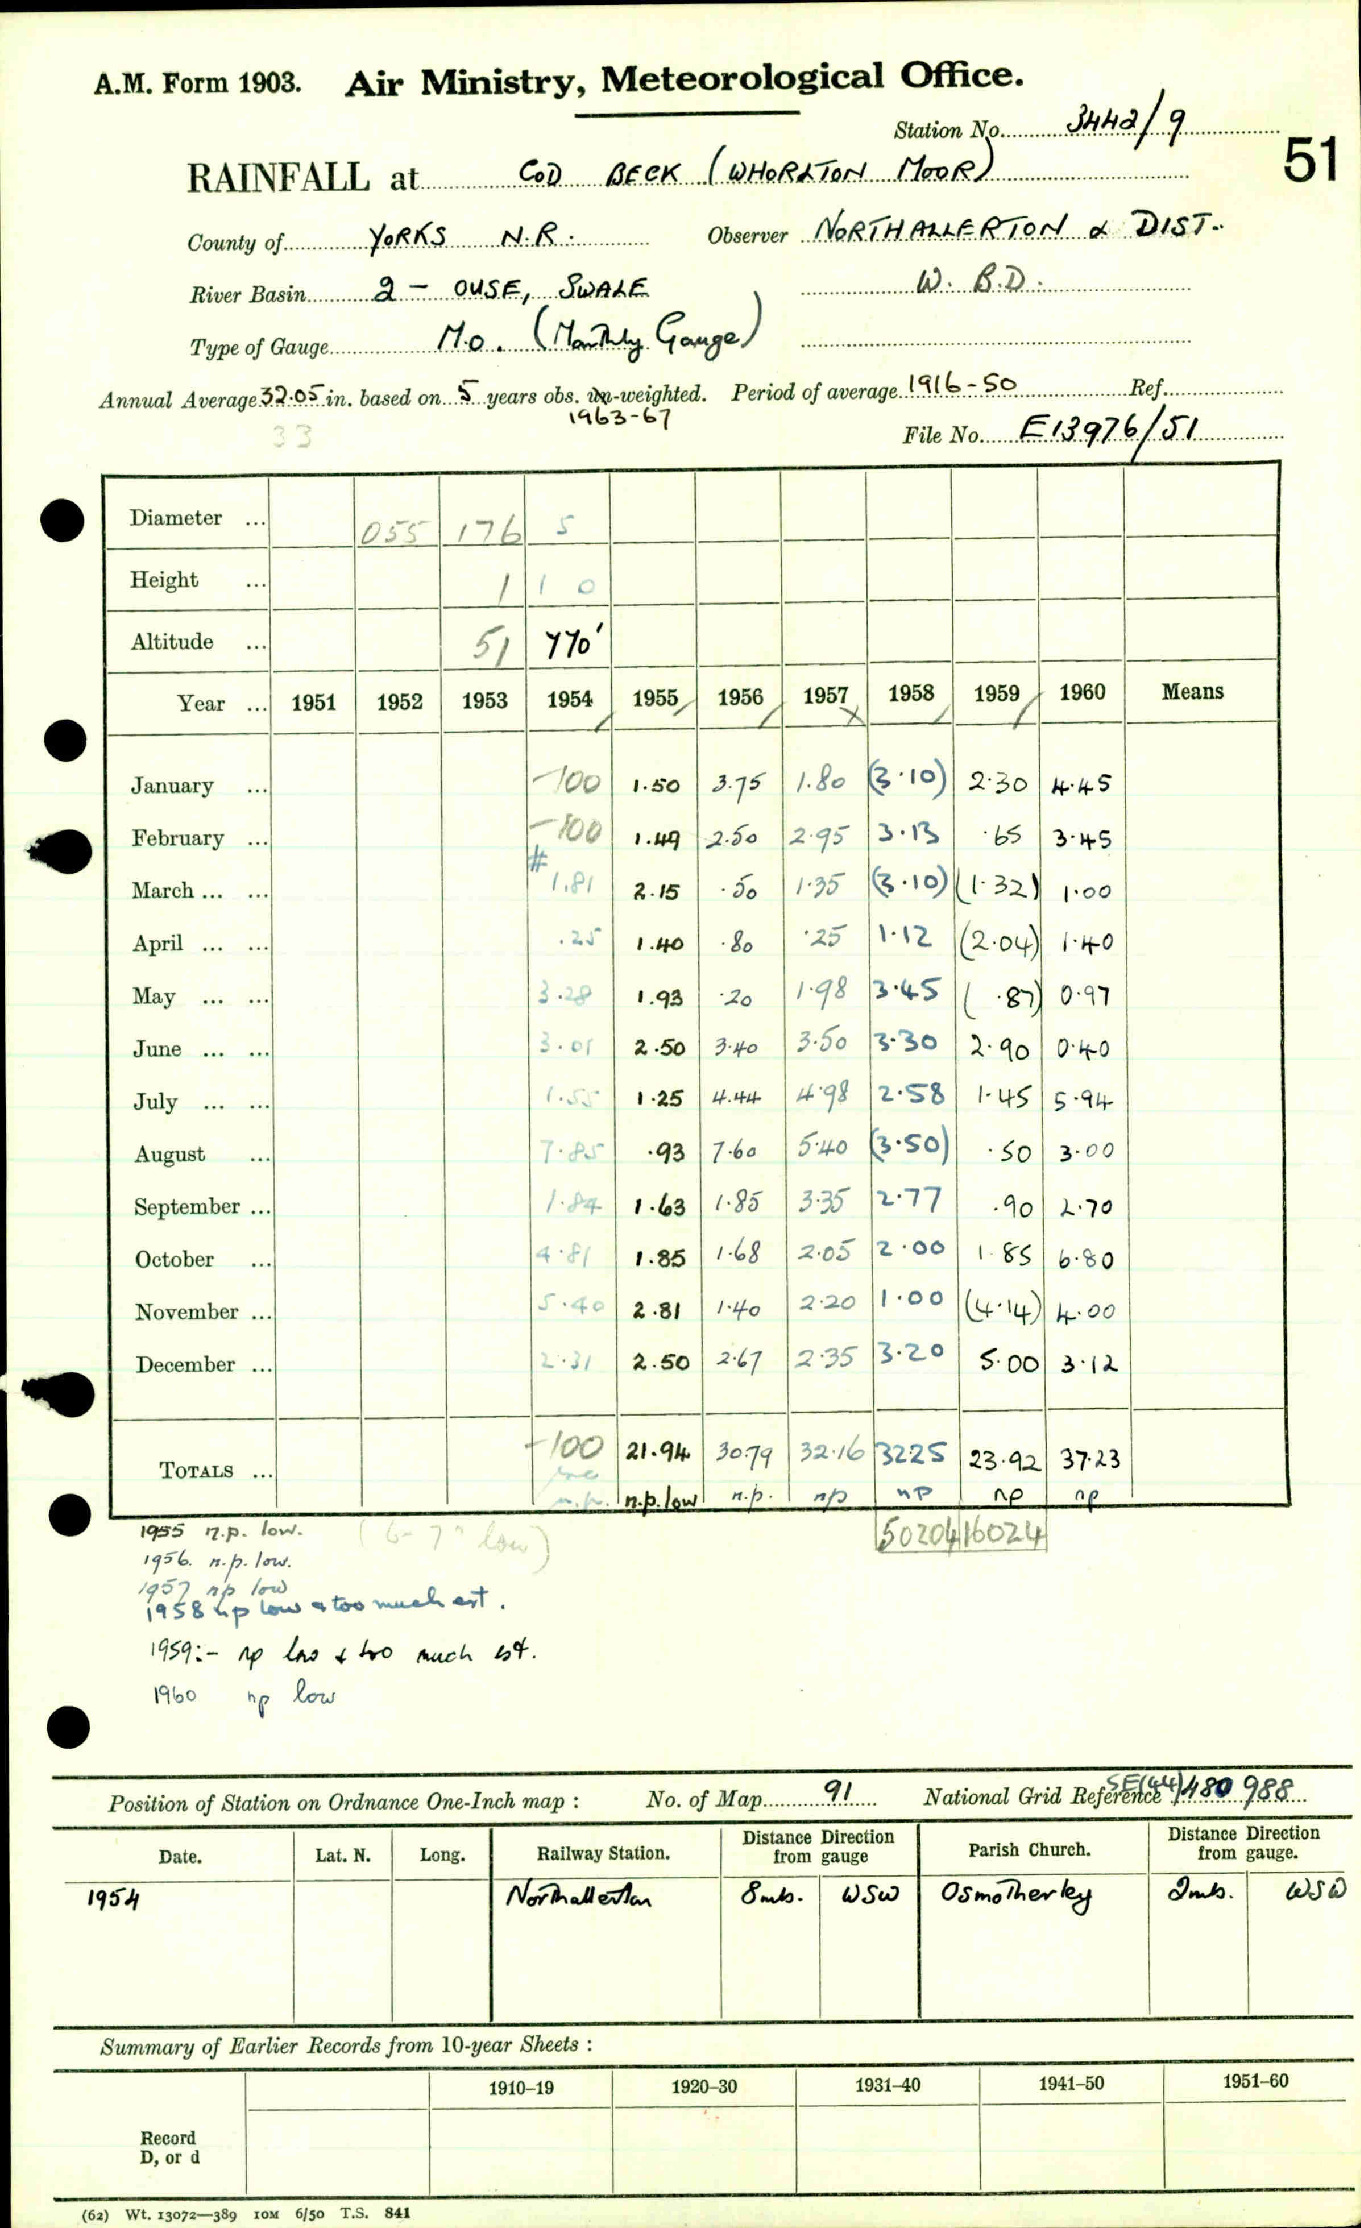 A.M. Form 1903. Air Ministry, Meteorological Office.
Station No. 3442/9
51
RAINFALL at COD BECK (WHORLTON MOOR)
County of YORKS N.R. Observer NORTHALLERTON & DIST.
River Basin 2 - OUSE, SWALE W. B.D.
Type of Gauge M.O. (Monthly Gauge)
Annual Average 32.05 in. based on 5 years obs. un-weighted. Period of average 1916-50 Ref.
33 1963-67
File No. E13976/51
Diameter ... 055 176 5
Height ... 1 1 0
Altitude ... 51 770'
Year ... 1951 1952 1953 1954 1955 1956 1957 1958 1959 1960 Means
January ... -100 1.50 3.75 1.80 (3.10) 2.30 4.45
February ... -100 1.49 2.50 2.95 3.13 .65 3.45
March ... ... # 1.81 2.15 .50 1.35 (3.10) (1.32) 1.00
April ... ... .25 1.40 .80 .25 1.12 (2.04) 1.40
May ... ... 3.28 1.93 .20 1.98 3.45 (.87) 0.97
June ... ... 3.01 2.50 3.40 3.50 3.30 2.90 0.40
July ... ... 1.55 1.25 4.44 4.98 2.58 1.45 5.94
August ... 7.85 .93 7.60 5.40 (3.50) .50 3.00
September ... 1.84 1.63 1.85 3.35 2.77 .90 2.70
October ... 4.81 1.85 1.68 2.05 2.00 1.85 6.80
November ... 5.40 2.81 1.40 2.20 1.00 (4.14) 4.00
December ... 2.31 2.50 2.67 2.35 3.20 5.00 3.12
TOTALS ... -100 21.94 30.79 32.16 32.25 23.92 37.23
inc
n.p. n.p. low n.p. np np np np
50204 16024
1955 n.p. low. (6-7" low)
1956. n.p. low.
1957 np low
1958 np low & too much est.
1959:- np low & too much est.
1960 np low
Position of Station on Ordnance One-Inch map : No. of Map 91 National Grid Reference SE(44) 480 988
Date. Lat. N. Long. Railway Station. Distance Direction from gauge Parish Church. Distance Direction from gauge.
1954 Northallerton 8 mls. WSW Osmotherley 2 mls. WSW
Summary of Earlier Records from 10-year Sheets :
1910–19 1920–30 1931–40 1941–50 1951–60
Record
D, or d
(62) Wt. 13072—389 10M 6/50 T.S. 841